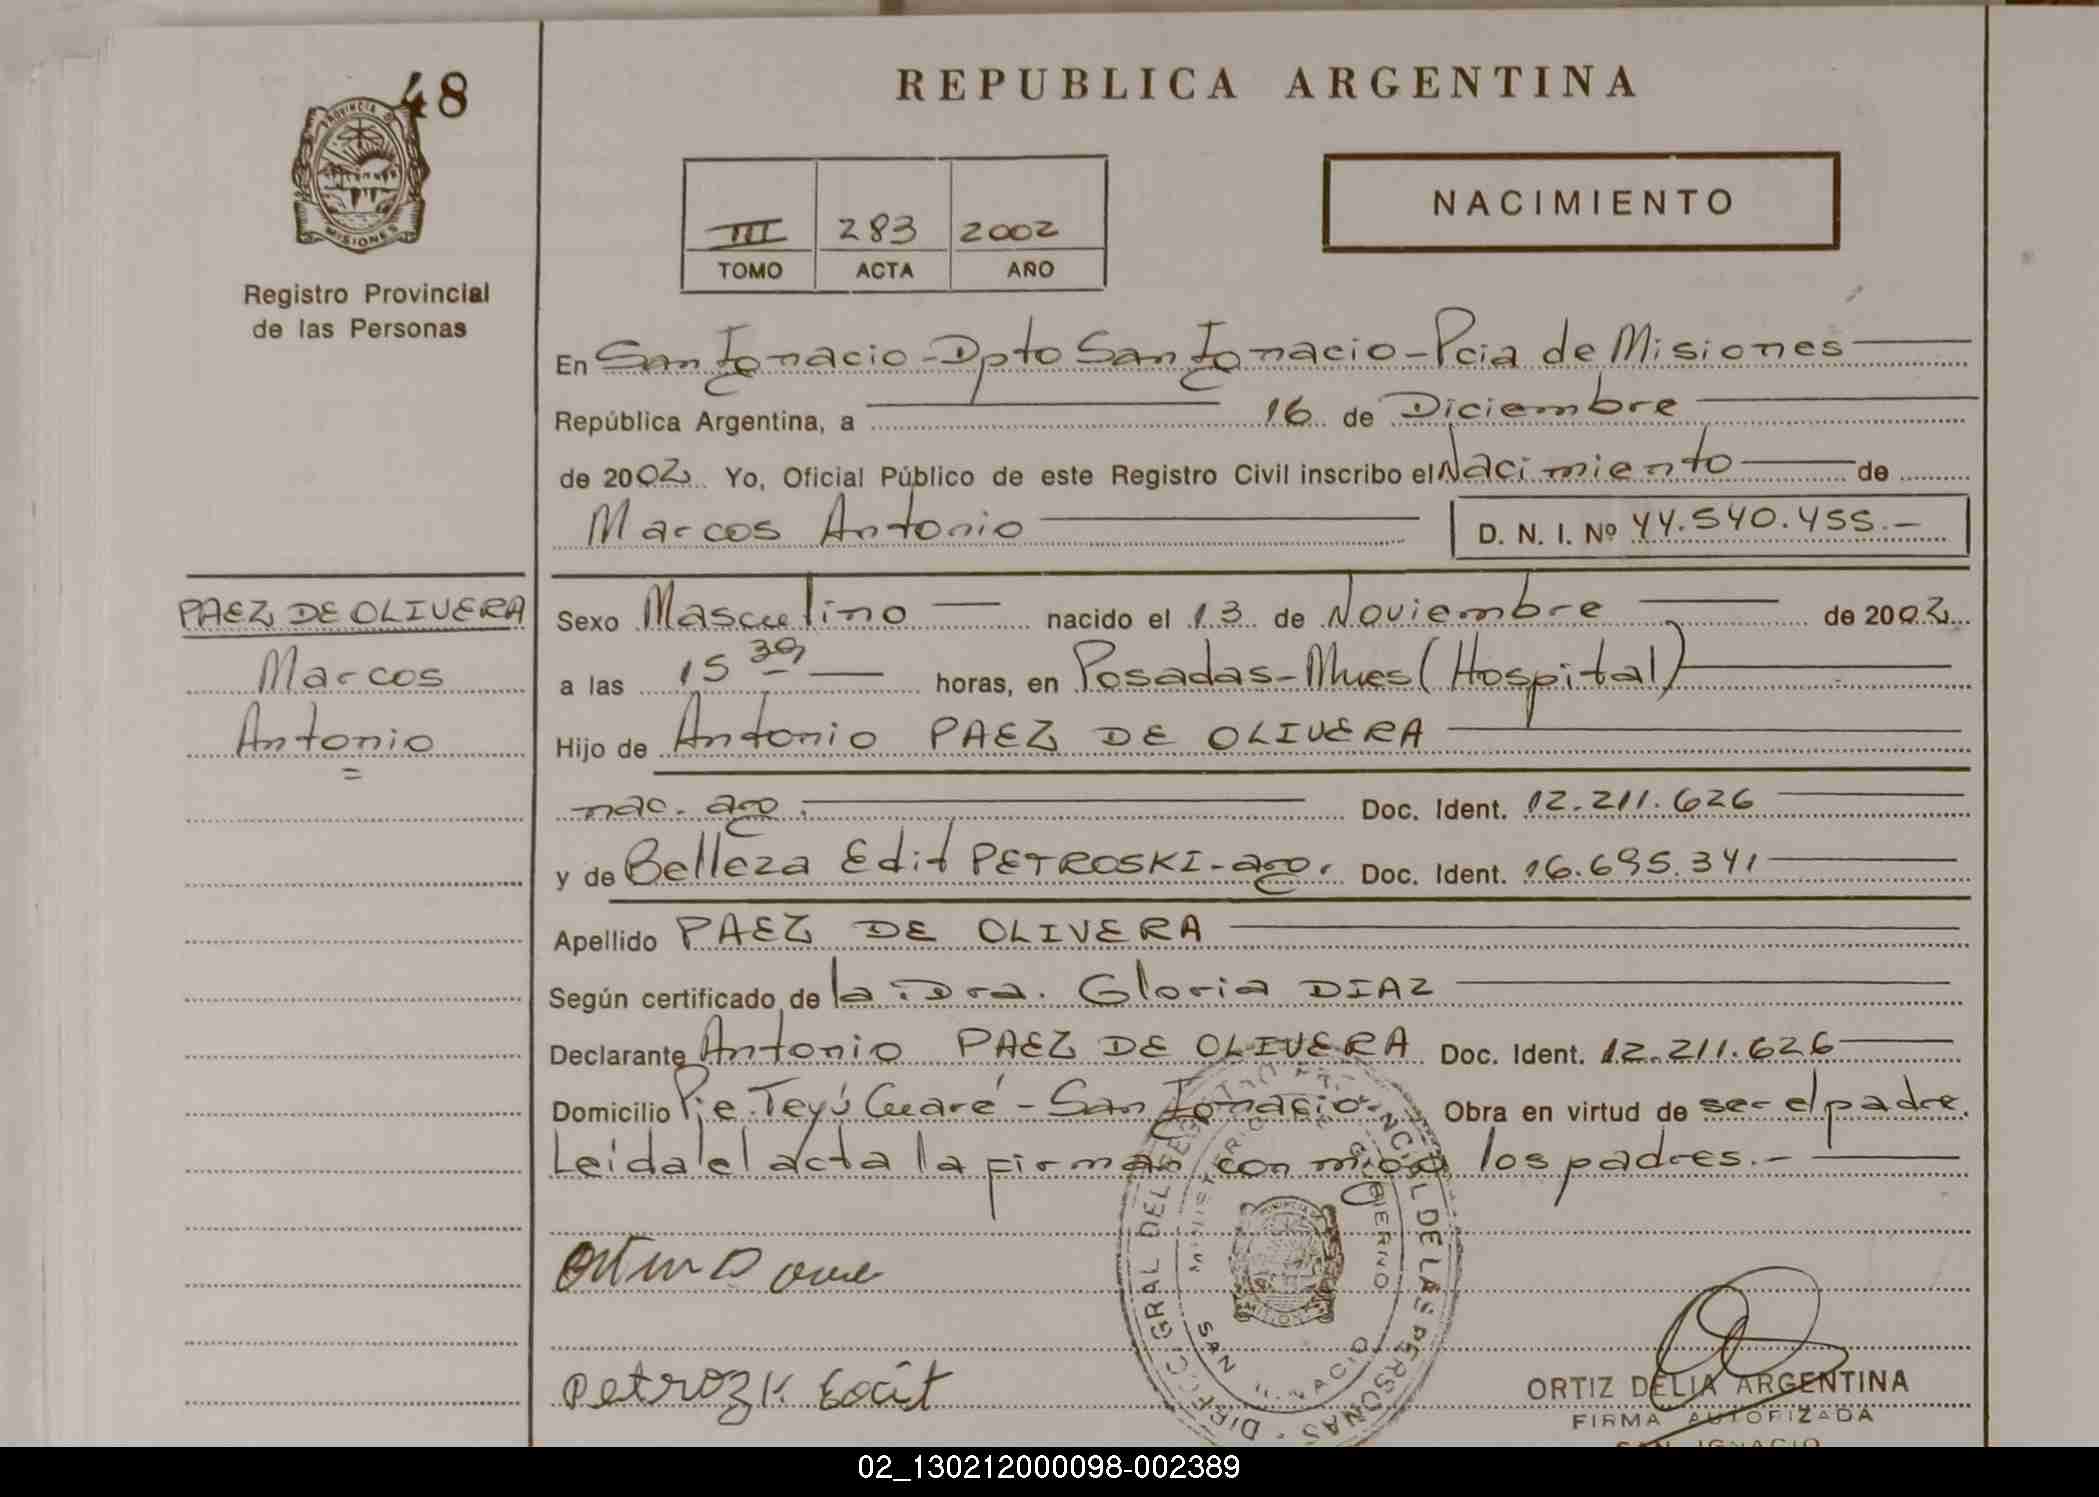 48
REPUBLICA ARGENTINA
PROVINCIA DE
MISIONES
Registro Provincial
de las Personas
NACIMIENTO
III 283 2002
TOMO ACTA AÑO
En San Ignacio - Dpto San Ignacio - Pcia de Misiones
República Argentina, a 16 de Diciembre
de 2002 Yo, Oficial Público de este Registro Civil inscribo el Nacimiento de
Marcos Antonio D. N. I. Nº 44.540.455.-
PAEZ DE OLIVERA
Marcos
Antonio
Sexo Masculino nacido el 13 de Noviembre de 2002
a las 15 30 horas, en Posadas - Mnes (Hospital)
Hijo de Antonio PAEZ DE OLIVERA
nac. arg. Doc. Ident. 12.211.626
y de Belleza Edit PETROSKI - arg. Doc. Ident. 16.695.341
Apellido PAEZ DE OLIVERA
Según certificado de la Dra. Gloria DIAZ
Declarante Antonio PAEZ DE OLIVERA Doc. Ident. 12.211.626
Domicilio Pje. Teyú Cuaré - San Ignacio - Obra en virtud de ser el padre.
Leida el acta la firman con migo los padres.-
DIRECC. GRAL DEL REGISTRO PROVINCIAL DE LAS PERSONAS
MINISTERIO DE GOBIERNO
SAN IGNACIO
Petrozk Edit
ORTIZ DELIA ARGENTINA
FIRMA AUTORIZADA
SAN IGNACIO
02_130212000098-002389